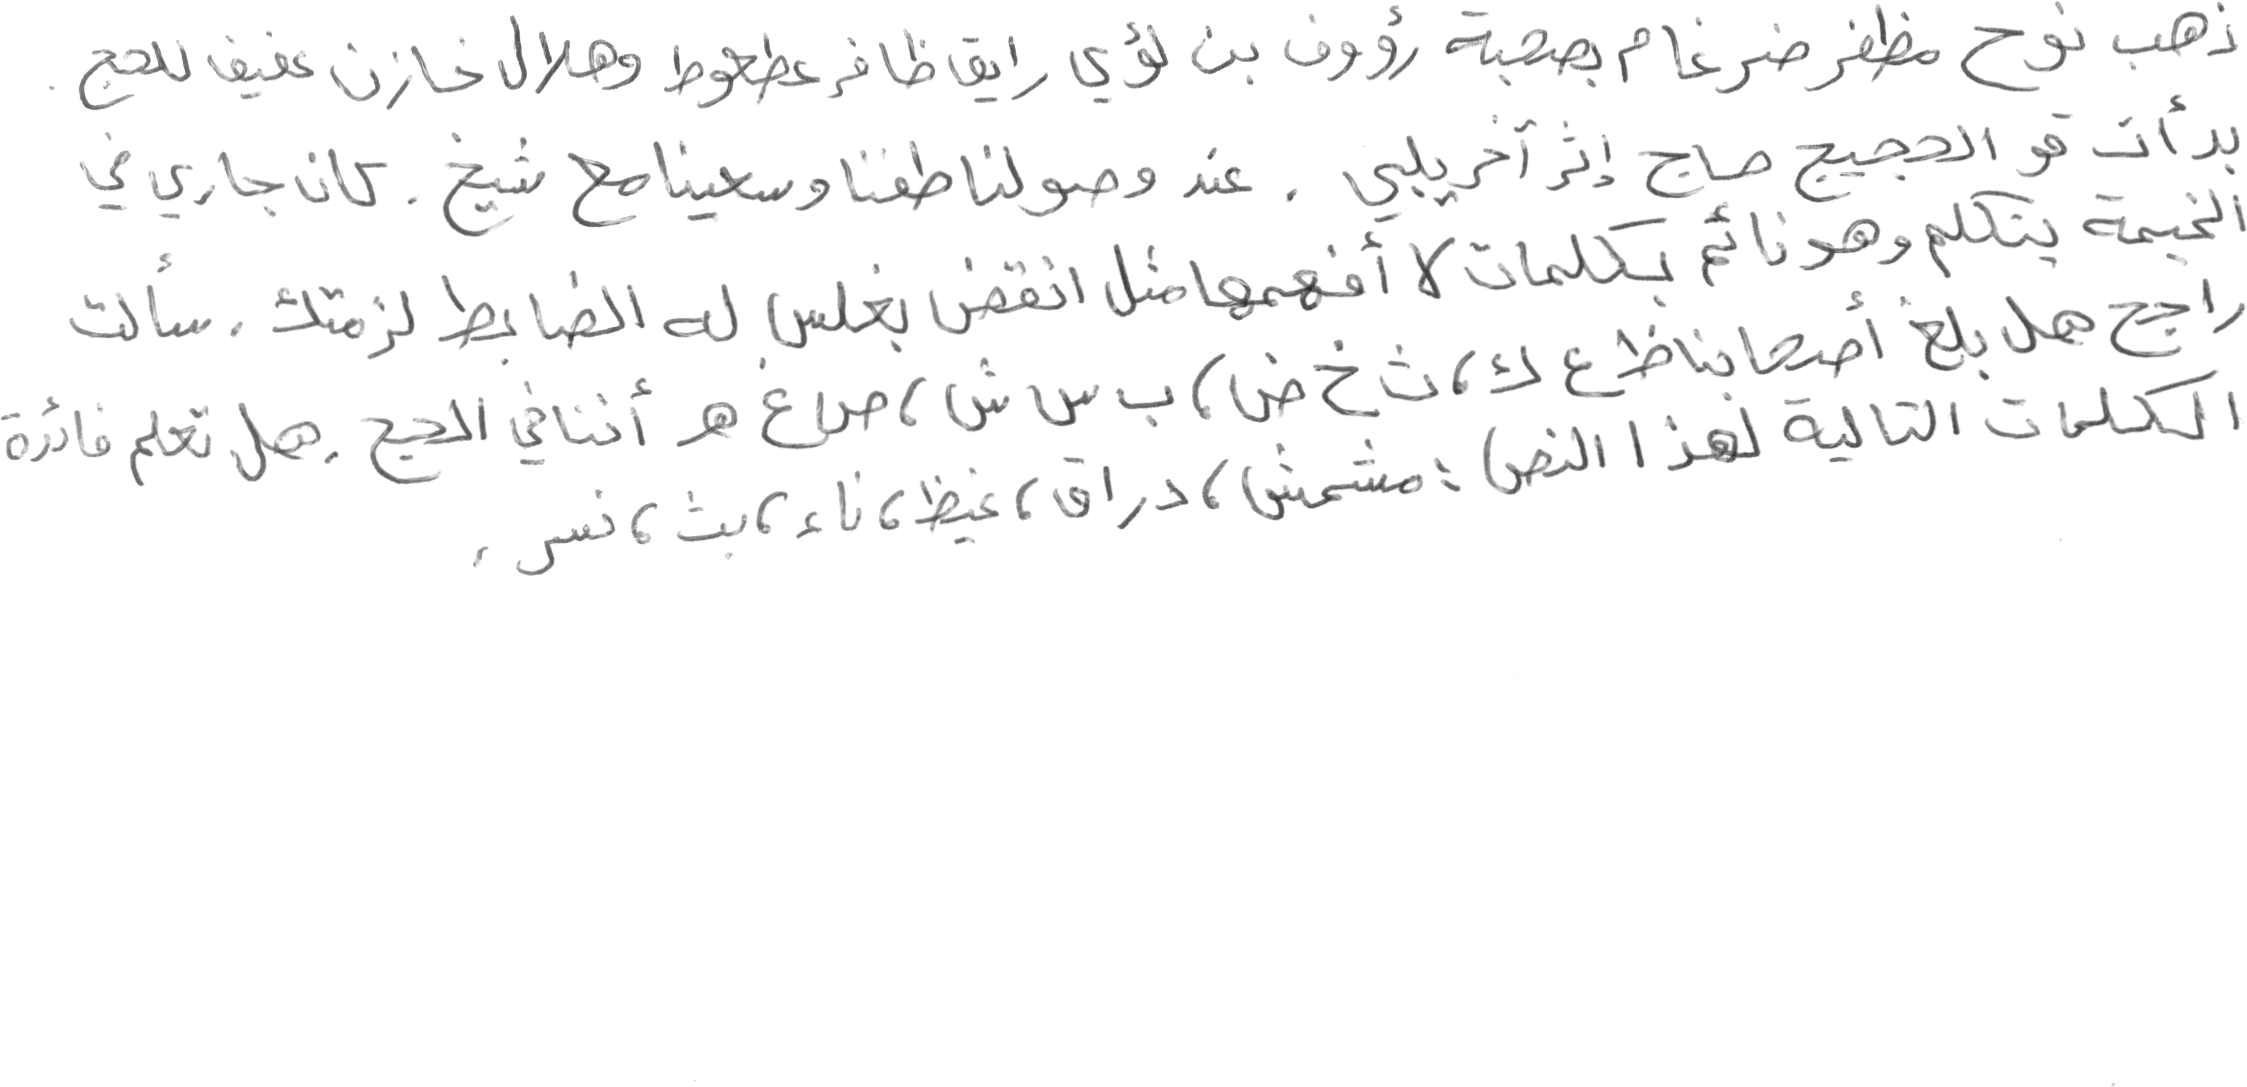 ذهب نوح مظفر ضرغام بصحبة رؤوف بن لؤي رايقا ظافر عطعوط وهلال خازن عفيف للحج .
بدأت قو الحجيج صاج إثر آخر يلبي . عند وصولنا طفنا وسعينا مع شيخ . كان جاري في
الخيمة يتكلم وهو نائم بكلمات لا أفهمها مثل انقض بغلس له الضابط لزمتك . سألت
راجح هل بلغ أصحابنا ظ ع ك، ث خ ض، ب س ش، ص غ هـ أننا في الحج . هل تعلم فائدة
الكلمات التالية لهذا النص : مشمش، دراق، غيظ، ناء، بث، نسر .